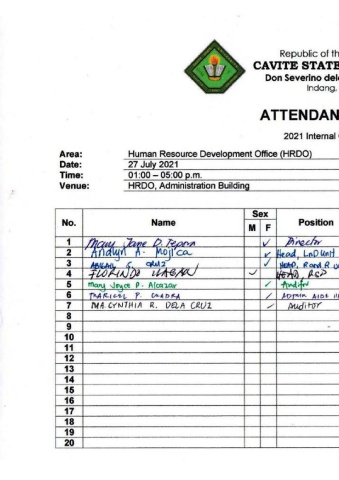 Republic of th
CAVITE STATE
Don Severino dela
Indang,
ATTENDAN
2021 Internal
Area: Human Resource Development Office (HRDO)
Date: 27 July 2021
Time: 01:00 – 05:00 p.m.
Venue: HRDO, Administration Building
No. Name Sex Position
M F
1 Mary Jane D. Tepora ✓ Director
2 Andlyn A. Mojica ✓ Head, LnD Unit
3 CRUZ ✓ HEAD, R and R
4 FLORINDO ILAGAN ✓ HEAD, RSP
5 Mary Joyce P. Alcazar ✓ Auditor
6 MARICEL P. CUADRA ✓ ADMIN AIDE III
7 MA. CYNTHIA R. DELA CRUZ ✓ Auditor
8
9
10
11
12
13
14
15
16
17
18
19
20